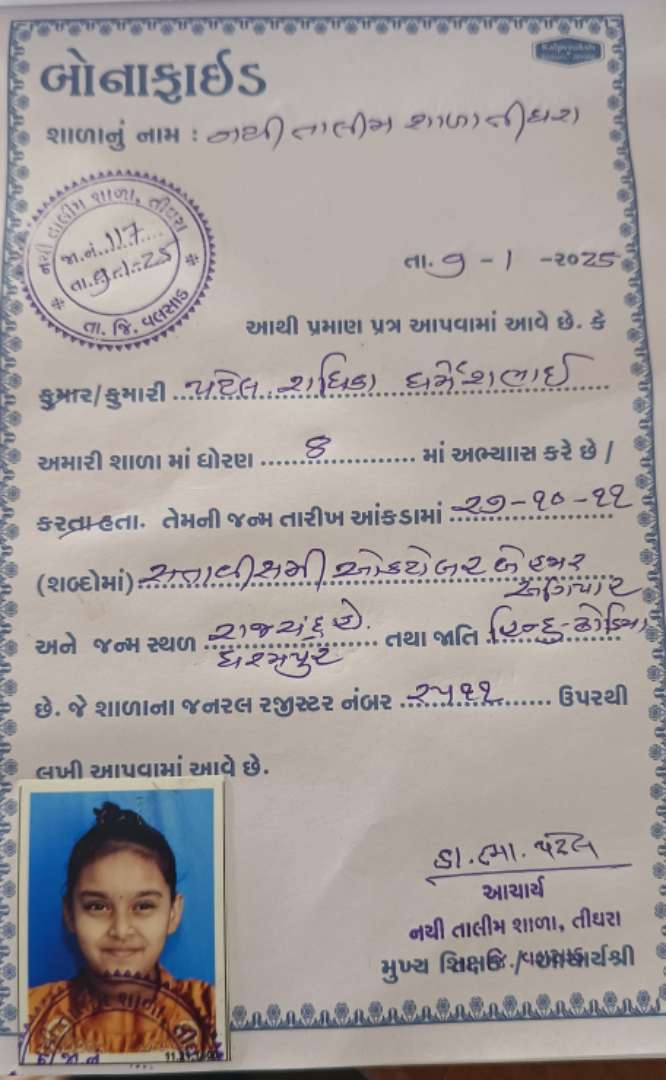 બોનાફાઈડ
શાળાનું નામ : નયી તાલીમ શાળા તીઘરા
નયી તાલીમ શાળા, તીઘરા
જા.નં. 117
તા. 9-1-25
તા. જિ. વલસાડ
તા. 9 - 1 -૨૦25
આથી પ્રમાણ પત્ર આપવામાં આવે છે. કે
કુમાર/કુમારી પટેલ રાધિકા ધર્મેશભાઈ
અમારી શાળા માં ધોરણ 8 માં અભ્યાસ કરે છે /
કરતા હતા. તેમની જન્મ તારીખ આંકડામાં ૨૭-૧૦-૧૧
(શબ્દોમાં) સત્તાવીસમી ઓક્ટોબર બે હજાર
અગિયાર
અને જન્મ સ્થળ રાજચંદ્ર હો. તથા જાતિ હિન્દુ-ઢોડિયા
ધરમપુર
છે. જે શાળાના જનરલ રજીસ્ટર નંબર ૨૫૧૧ ઉપરથી
લખી આપવામાં આવે છે.
ડા.ભા. પટેલ
આચાર્ય
નયી તાલીમ શાળા, તીઘરા
મુખ્ય શિક્ષક / આચાર્યશ્રી